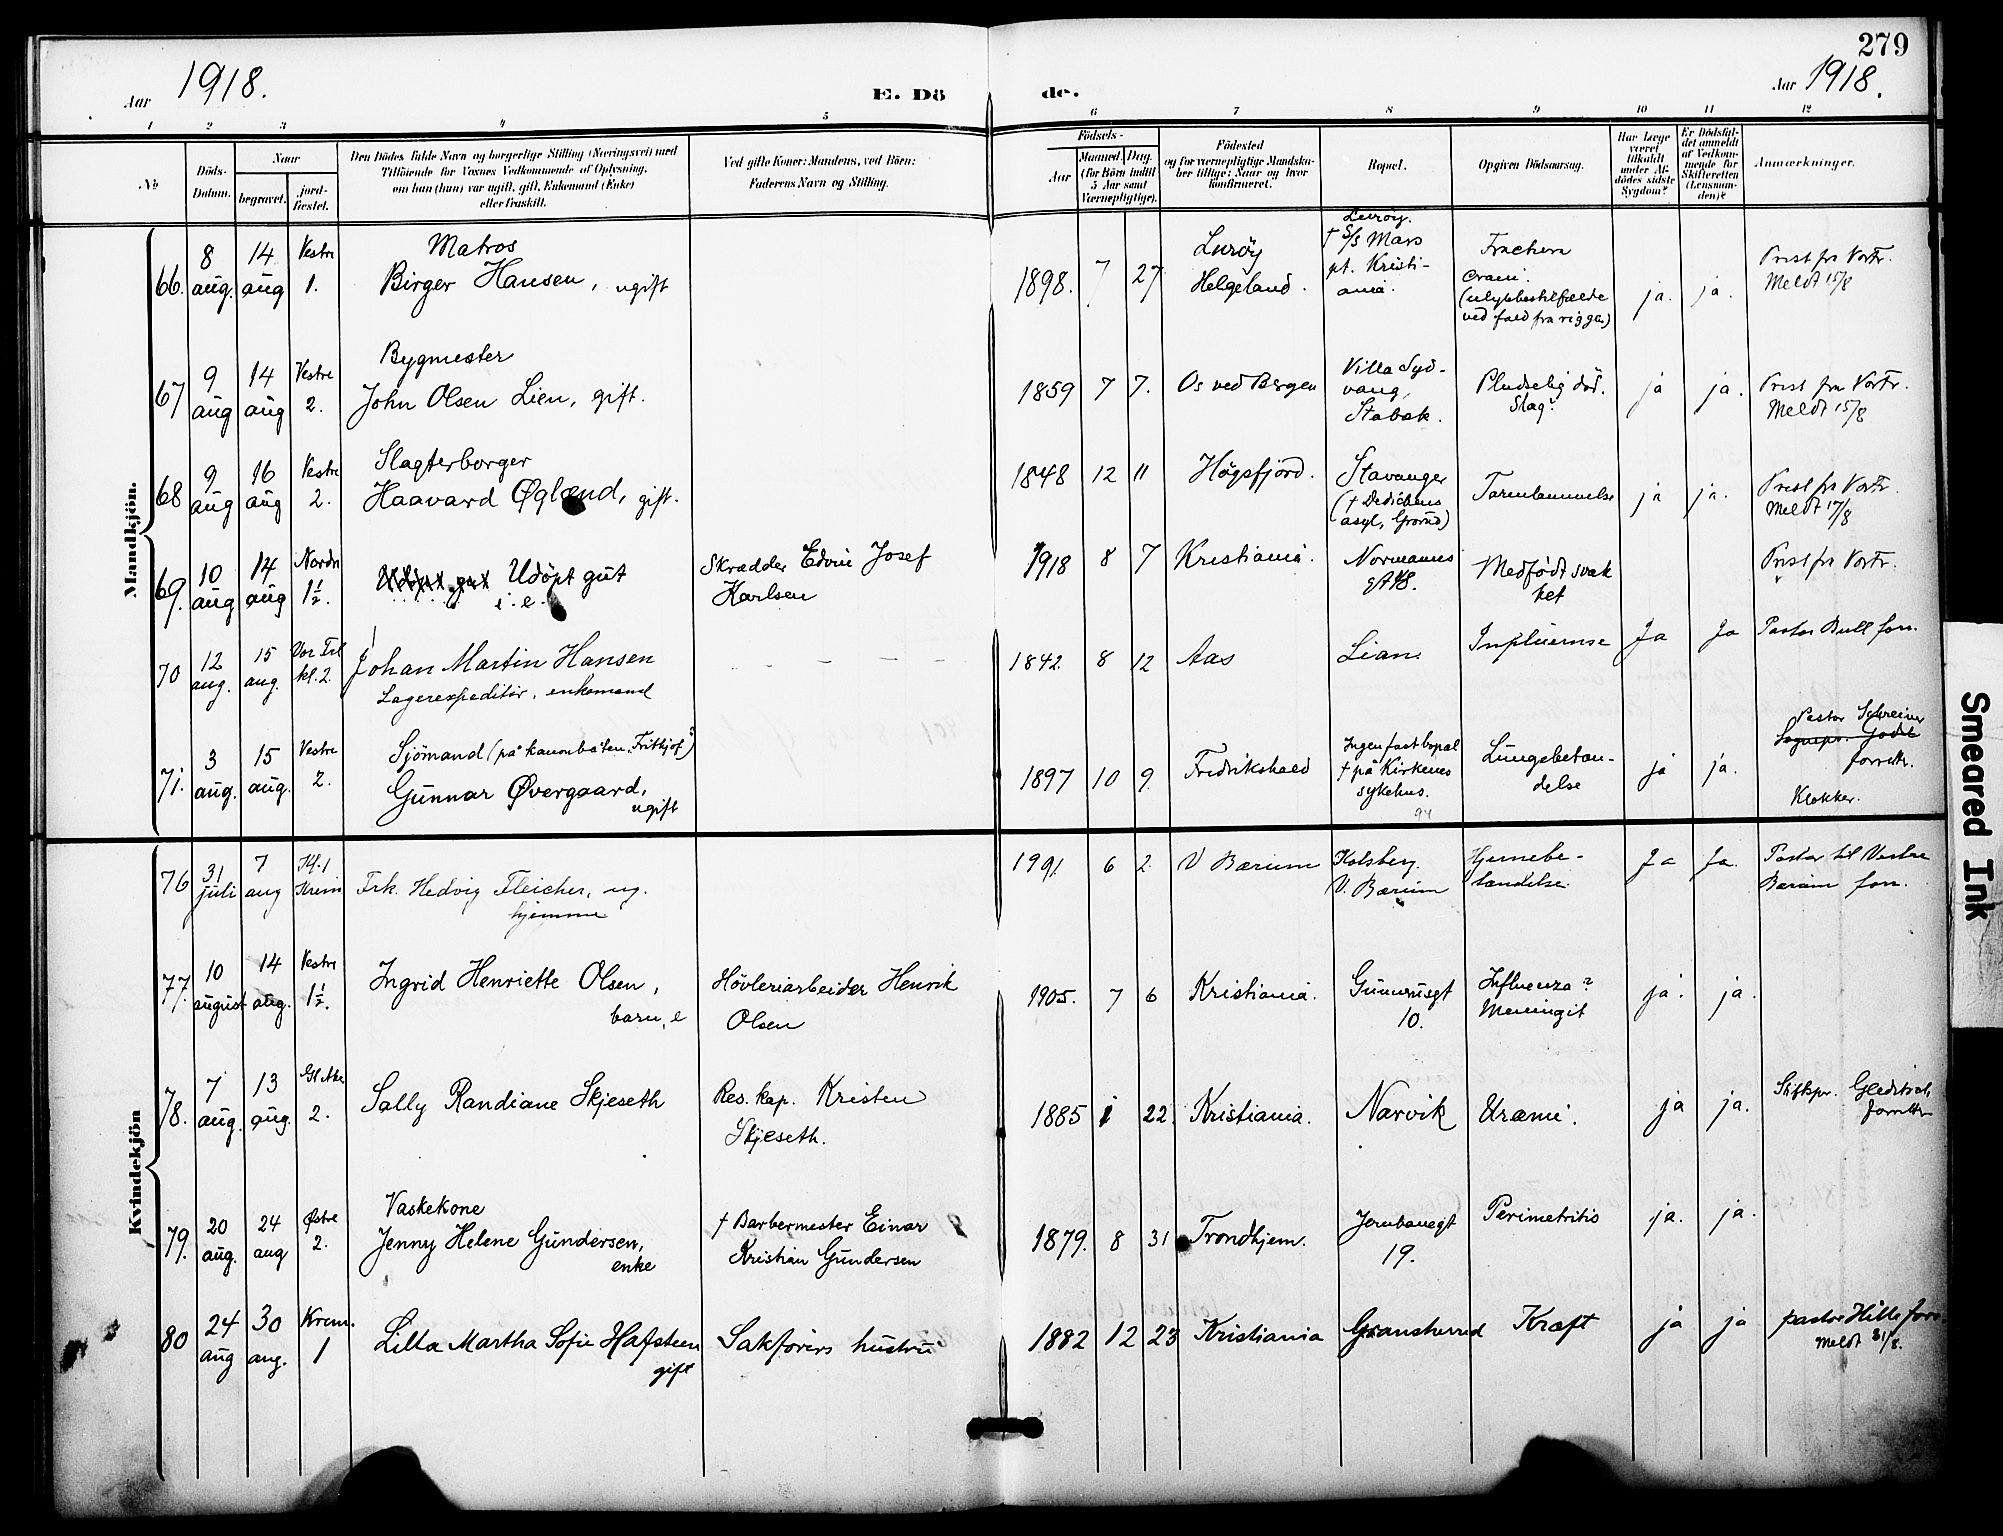 279
Aar 1918.
E. Dö
de.
Aar 1918.
1 2 3 4 5 6 7 8 9 10 11 12
No
Döds-
Datum.
Naar
begravet.
jord-
fæstet.
Den Dödes fulde Navn og borgerlige Stilling (Næringsvei) med
Tilföiende for Voxnes Vedkommende af Oplysning,
om han (hun) var ugift, gift, Enkemand (Enke)
eller fraskilt.
Ved gifte Koner: Mandens, ved Börn:
Faderens Navn og Stilling.
Födsels-
Aar
Maaned. Dag.
(for Börn indtil
5 Aar samt
Værnepligtige).
Födested
og for værnepligtige Mandska-
ber tillige: Naar og hvor
konfirmeret.
Bopæl.
Opgiven Dödsaarsag.
Har Læge
været
tilkaldt
under Af-
dödes sidste
Sygdom?
Er Dödsfal-
det anmeldt
af Vedkom-
mende for
Skifteretten
(Lensman-
den)?
Anmærkninger.
Mandkjön.
66.
8
aug.
14
aug
Vestre
1.
Matros
Birger Hansen, ugift
1898. 7 27
Lurøy
Helgeland.
Lurøy.
† S/S Mars
pt. Kristi-
ania.
Fractura
cranii.
(ulykkestilfælde
ved fald fra riggen)
ja. ja.
Prest fra Vorfr.
Meldt 15/8
67
9
aug
14
aug
Vestre
2.
Bygmester
John Olsen Lien, gift.
1859 7 7.
Os ved Bergen
Villa Syd-
vang,
Stabæk.
Pludselig död.
Slag?
ja ja.
Prest fra Vorfr.
Meldt 15/8
68
9
aug
16
aug
Vestre
2.
Slagterborger
Haavard Øglænd, gift.
1848 12 11
Högsfjord.
Stavanger
(† Dedichens
asyl, Grorud)
Tarmlammelse
ja ja.
Prest fra Vorfr.
Meldt 17/8
69.
10
aug
14
aug
Nordre
1½.
Udöpt gut Udöpt gut
i. e.
Skrædder Edvin Josef
Karlsen
1918 8 7
Kristiania.
Normanns
gt 48.
Medfödt svak
het
Prest fra Vorfr.
70
12
aug.
15
aug.
Vor Frl
kl. 2.
Johan Martin Hansen
Lagerexpeditör, enkemand
1842 8 12
Aas
Lian
Influense
Ja Ja
Pastor Bull forr.
71.
3
aug.
15
aug.
Vestre
2.
Sjömand (på kanonbåten "Fridtjof")
Gunnar Övergaard,
ugift
1897 10 9.
Fredrikshald
Ingen fast bopæl
† på Kirkenes
sykehus.
94
Lungebetæn-
delse
ja ja.
Pastor Schreiner
forrettr.
Klokker.
Kvindekjön
76
31
juli
7
aug
Kl. 1
Krem
Frk. Hedvig Fleicher, ug.
hjemme
1901 6 2
V Bærum
Kolsberg.
V. Bærum
Hjernebe-
tændelse.
Ja Ja.
Pastor til Vestre
Bærum forr.
77.
10
august
14
aug.
Vestre
1½.
Ingrid Henriette Olsen,
barn, e
Hövleriarbeider Henrik
Olsen
1905. 7 6
Kristiania.
Gunerusgt
10.
Influenza?
Meningit
ja. ja.
78.
7
aug.
13
aug.
Gl Aker
2.
Sally Randiane Skjeseth
Res. kap. Kristen
Skjeseth.
1885 1 22.
Kristiania.
Narvik
Uræmi.
ja ja.
Stiftspr. Gleditsch
forretter
79.
20
aug.
24
aug
Østre
2.
Vaskekone
Jenny Helene Gundersen,
enke
† Barbermester Einar
Kristian Gundersen
1879. 8 31
Trondhjem.
Jernbanegt
19.
Perimetritis
ja. ja.
80
24
aug
30
aug.
Krem.
1
Lilla Martha Sofie Hafsteen
gift
Sakförers hustru
1882 12 23
Kristiania
Gransherred
Kræft
ja ja
pastor Hille forr.
Meldt 31/8.
Smeared Ink